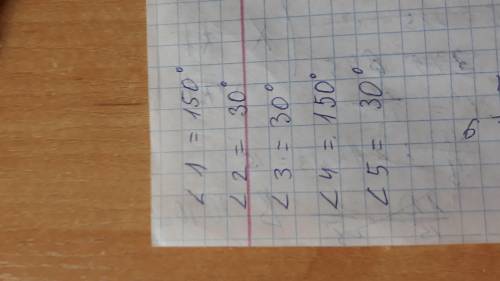 ∠1 = 150°
∠2 = 30°
∠3 = 30°
∠4 = 150°
∠5 = 30°